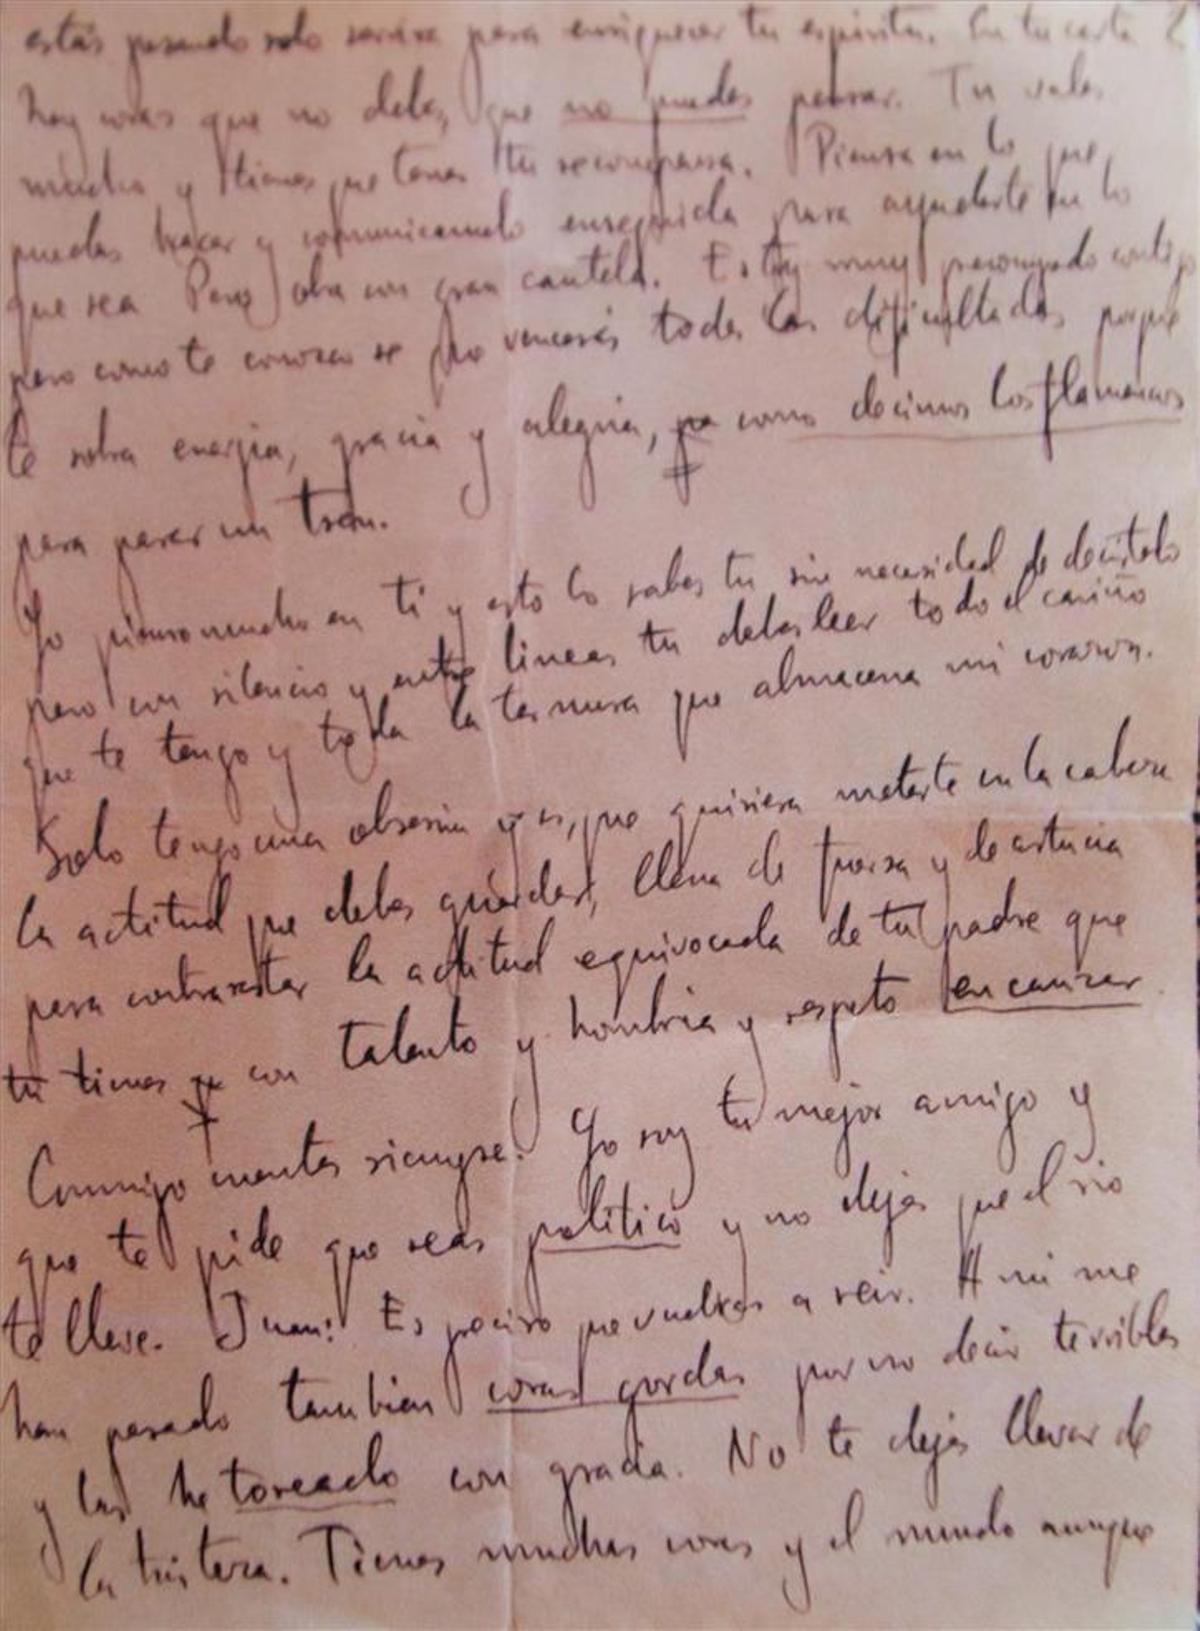 estás pasando solo servira para enriquecer tu espiritu. En tu carta 2
hay cosas que no debes, que no puedes pensar. Tu vales
mucho y tienes que tener tu recompensa. Piensa en lo que
puedas hacer y comunicamelo enseguida para ayudarte en lo
que sea Pero obra con gran cautela. Estoy muy preocupado contigo
pero como te conozco se que vencerás todas las dificultades porque
te sobra energia, gracia y alegria, como decimos los flamencos
para parar un tren.
Yo pienso mucho en ti y esto lo sabes tu sin necesidad de decirtelo
pero con silencio y entre lineas tu debes leer todo el cariño
que te tengo y toda la ternura que almacena mi corazon.
Solo tengo una obsesion y es, que quisiera meterte en la cabeza
la actitud que debes guardar, llena de fuerza y de astucia
para contrarestar la actitud equivocada de tu padre que
tú tienes que con talento y hombria y respeto encauzar
Conmigo cuentas siempre. Yo soy tu mejor amigo y
que te pide que seas politico y no dejes que el rio
te lleve. Juan! Es preciso que vuelvas a reir. A mi me
han pasado tambien cosas gordas por no decir terribles
y las he toreado con gracia. No te dejes llevar de
la tristeza. Tienes muchas cosas y el mundo aunque